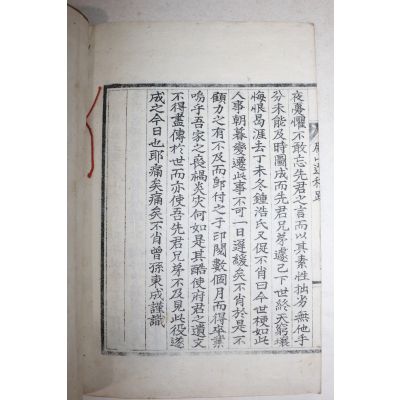 夜憂懼不敢忘先君之言而以其素性拙劣無他手
分未能及時圖成而先君兄弟遽已下世終天窮壤
悔恨曷涯去丁未冬鍾浩氏又促不肖曰今世梗如此
人事朝暮變遷此事不可一日遲緩矣不肖於是不
顧力之有不及而卽付之手印閱數個月而得卒業
嗚乎吾家之喪禍炎灾何如是其酷使府君之遺文
不得盡傳於世而亦使吾先君兄弟不及見此役遂
成之今日也耶痛矣痛矣不肖曾孫東成謹識